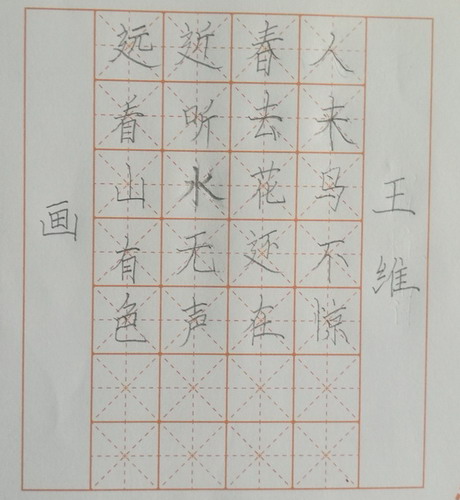 画
远看山有色
近听水无声
春去花还在
人来鸟不惊
王维